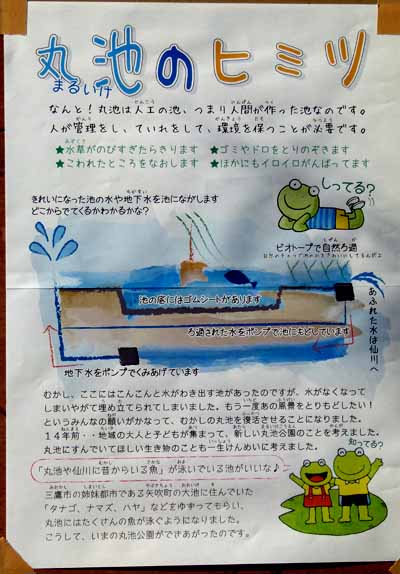 丸池のヒミツ
まるいけ
なんと！丸池は人工の池、つまり人間が作った池なのです。
人が管理をし、ていれをして、環境を保つことが必要です。
★水草がのびすぎたらきります ★ゴミやドロをとりのぞきます
★こわれたところをなおします ★ほかにもイロイロがんばってます
しってる?
きれいになった池の水や地下水を池にながします
どこからでてくるかわかるかな？
ビオトープで自然ろ過
池の底にはゴムシートがあります
あふれた水は仙川へ
ろ過された水をポンプで池にもどしています
地下水をポンプでくみあげています
むかし、ここにはこんこんと水がわき出す池があったのですが、水がなくなって
しまいやがて埋め立てられてしまいました。もう一度あの風景をとりもどしたい！
というみんなの願いがかなって、むかしの丸池を復活させることになりました。
14年前・・地域の大人と子どもが集まって、新しい丸池公園のことを考えました。
丸池にすんでいてほしい生き物のことも一生けんめいに考えました。
知ってる?
「丸池や仙川に昔からいる魚」が泳いでいる池がいいな♪
三鷹市の姉妹都市である矢吹町の大池に住んでいた
「タナゴ、ナマズ、ハヤ」などをゆずってもらい、
丸池にはたくさんの魚が泳ぐようになりました。
こうして、いまの丸池公園ができあがったのです。